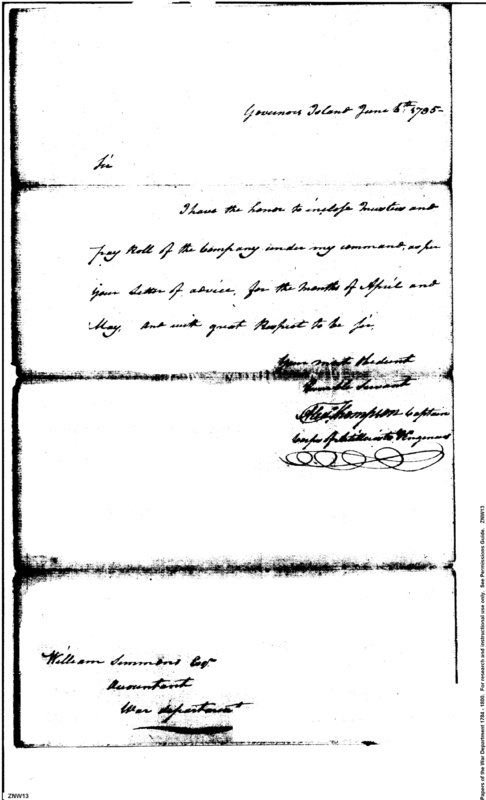 Governors Island June 6th 1795-
Sir
I have the honor to inclose Musters and
pay Roll of the Company under my command, as per
your Letter of advice, for the Months of April and
May, and with great Respect to be Sir,
Your most Obedient
Humble Servant
Alex Thompson Captain
Corps of Artillerists & Engineers
William Simmons Esqr
Accountant
War department
Papers of the War Department 1784 - 1800. For research and instructional use only. See Permissions Guide. ZNW13
ZNW13